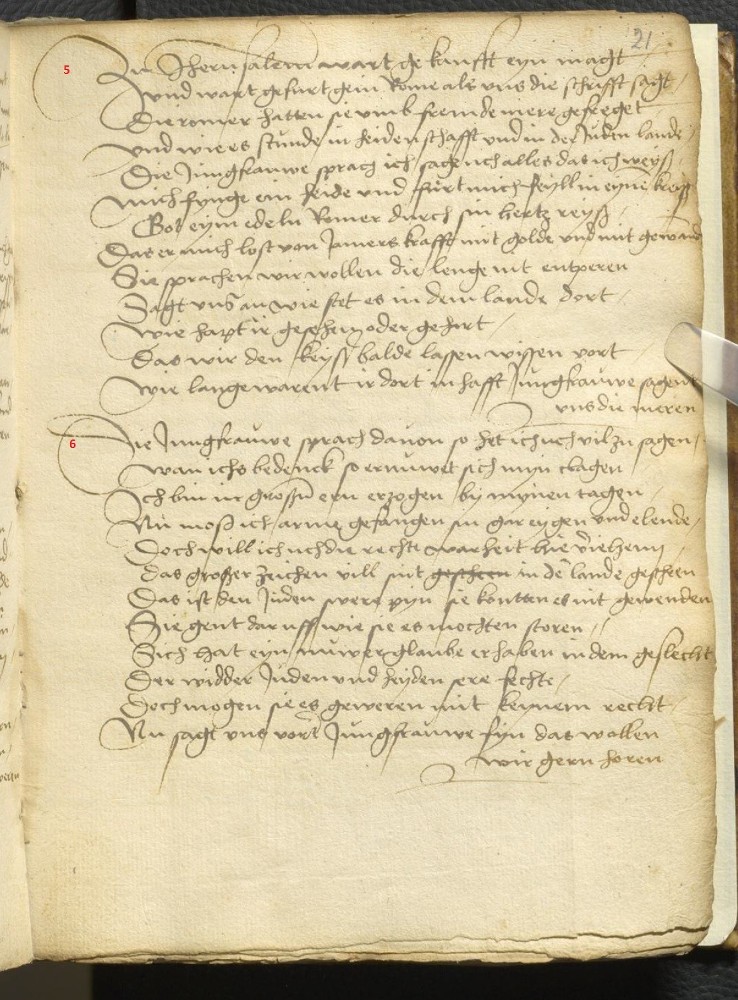 21
5
Zu Jherusalem wart gekaufft eyn magt
vnd wart gefurt gein Rome als vns die schrifft sagt /
Die romer hatten sie vmb fremde mere gefreget
vnd wie es stunde in heidenschafft vnd in der Juden lande /
Die Jungfrauwe sprach ich sage uch alles das ich weyß /
mich fynge ein heide vnd furt mich feyll in eyne kreyß
Got eym edeln Romer durch sin hertz reyß /
Das er mich lost von Jamers krafft mit golde vnd mit gewand
Sie sprachen wir wollen die lenge nit entperen
Sagt vns an wie stet es in dem lande dort /
wie hapt ir gesehen oder gehort /
Das wir den keyß balde lassen wissen vort /
wie lange warent ir dort in hafft Jungfrauwe sagent
vns die meren
6
Die Jungfrauwe sprach dauon so het ich uch vil zu sagen /
wan ichs bedenck so ernuwet sich myn clagen /
Ich bin in großen ern erzogen by mynen tagen /
Nu moß ich arme gefangen sin gar eygen vnd elende /
Doch will ich uch die rechte warheit hie veriehenn /
das großer zeichen vill sint gescheen in de lande gescheen
Das ist den Juden swere pyn sie konten es nit gewenden
Sie gent dar uff wie sie es mochten storen /
Sich hat eyn nuwer glaube erhaben in dem geslecht
Der widder Juden vnd heyden sere fechte /
Doch mogen sie es geweren mit keynem recht /
Nu sagt vns vort Jungfrauwe fyn das wollen
wir gern horen